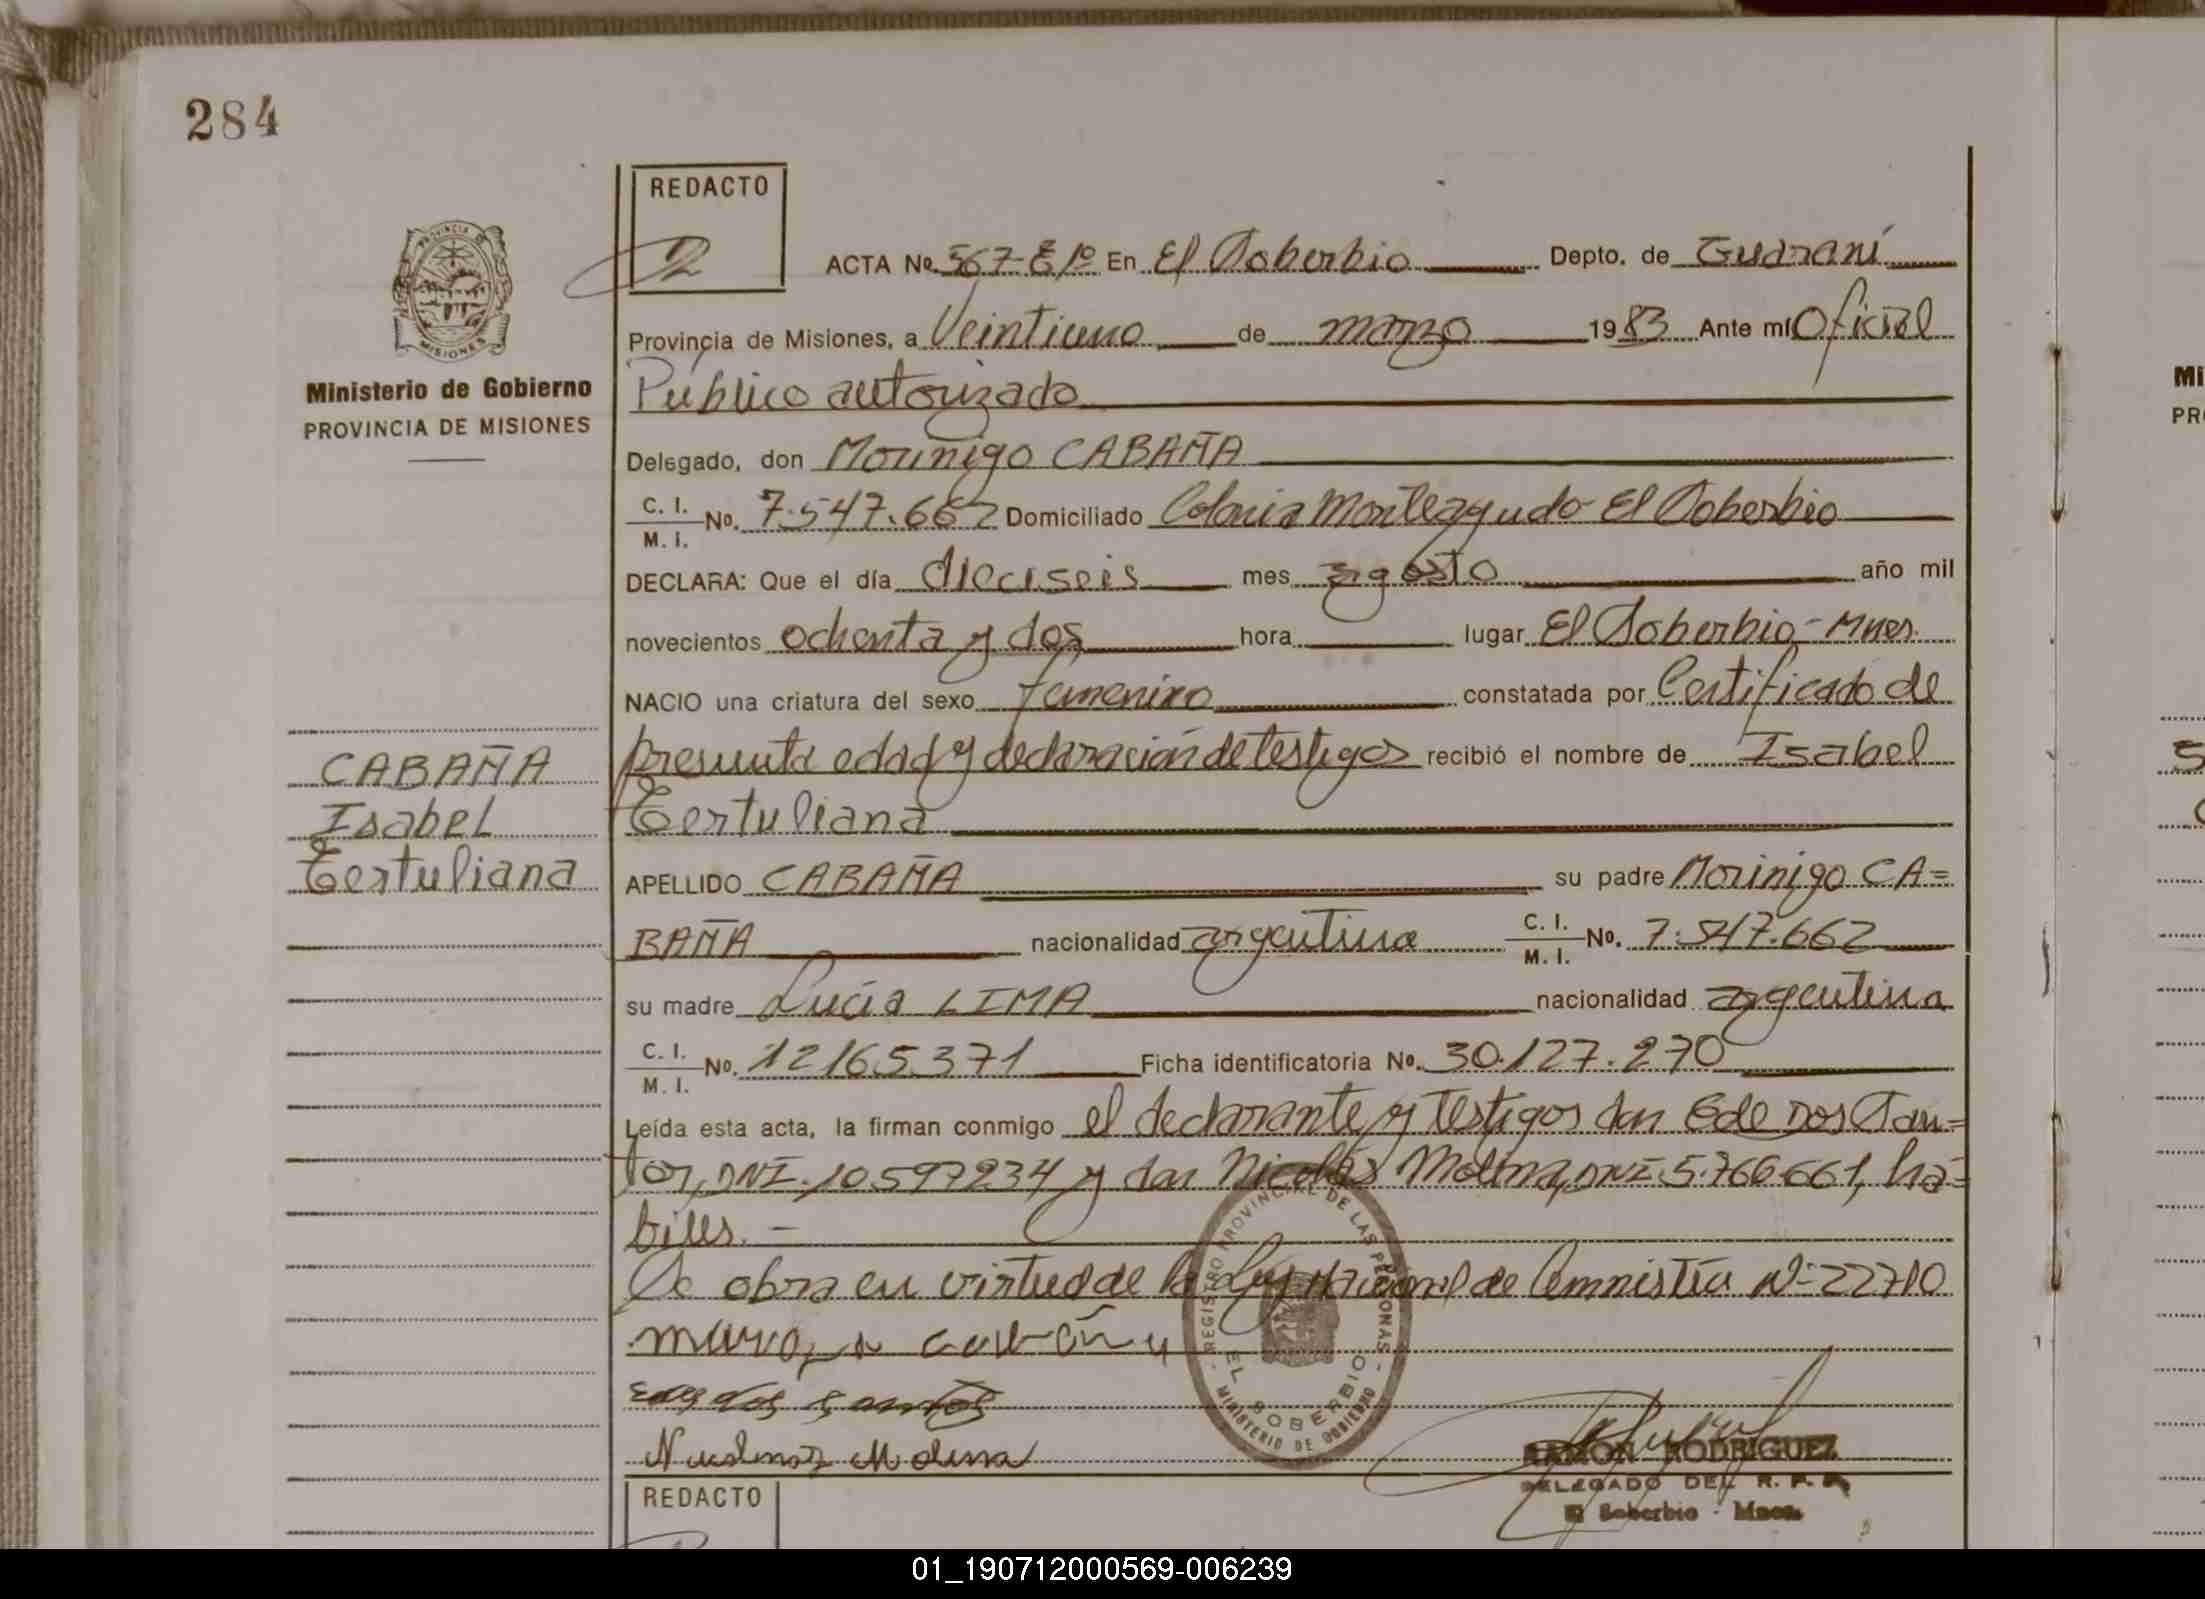 284
REDACTO
2
ACTA No. 567-Eº/º En El Soberbio Depto. de Guaraní
PROVINCIA DE
MISIONES
Ministerio de Gobierno
PROVINCIA DE MISIONES
Provincia de Misiones, a Veintiuno de marzo 1983 Ante mí Oficial
Público autorizado
Delegado, don Morinigo CABAÑA
C. I. / M. I. No. 7.547.662 Domiciliado Colonia Monteagudo-El Soberbio
DECLARA: Que el día dieciseis mes agosto año mil
novecientos ochenta y dos hora lugar El Soberbio-Mnes.
NACIO una criatura del sexo femenino constatada por Certificado de
presunta edad y declaración de testigos recibió el nombre de Isabel
Tertuliana
CABAÑA
Isabel
Tertuliana
APELLIDO CABAÑA su padre Morinigo CA=
BAÑA nacionalidad argentina C. I. / M. I. No. 7.547.662
su madre Lucía LIMA nacionalidad argentina
C. I. / M. I. No. 12165.371 Ficha identificatoria No. 30.127.270
Leída esta acta, la firman conmigo el declarante y testigos don Ede Dos San=
tos, DNI. 10.597234 y don Nicolás Molina, DNI 5.766.661, há=
biles.-
Se obra en virtud de la Ley Nacional de Amnistía Nº 22710
REGISTRO PROVINCIAL DE LAS PERSONAS
EL SOBERBIO
MINISTERIO DE GOBIERNO
dos santos
Molina
RAMON RODRIGUEZ
DELEGADO DEL R. P. P.
El Soberbio - Mnes.
REDACTO
Mi
PR
01_190712000569-006239